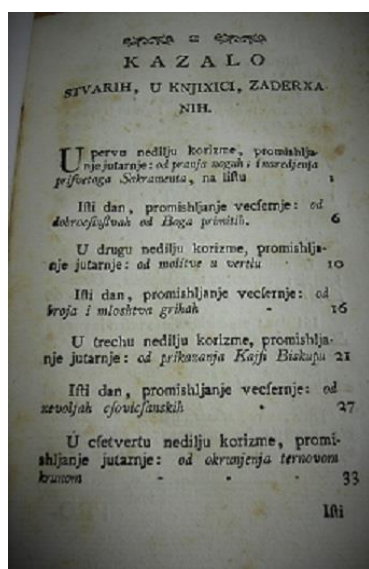 KAZALO
STVARIH, U KNJIXICI, ZADERXA-
NIH.
U pervu nedilju korizme, promishlja-
nje jutarnje: od pranja nogah i naredjenja
priſvetoga Sakramenta, na liſtu 1
Iſti dan, promishljanje vecſernje: od
dobrocſinſtvah od Boga primitih. 6
U drugu nedilju korizme, promishlja-
nje jutarnje: od molitve u vertlu - 10
Iſti dan, promishljanje vecſernje: od
broja i mloshtva grihah - 16
U trechu nedilju korizme, promishlja-
nje jutarnje: od prikazanja Kajfi Biskupu 21
Iſti dan, promishljanje vecſernje: od
nevoljah cſovicſanskih - 27
U cſetvertu nedilju korizme, promi-
shljanje jutarnje: od okrunjenja ternovom
krunom - - - 33
Iſti